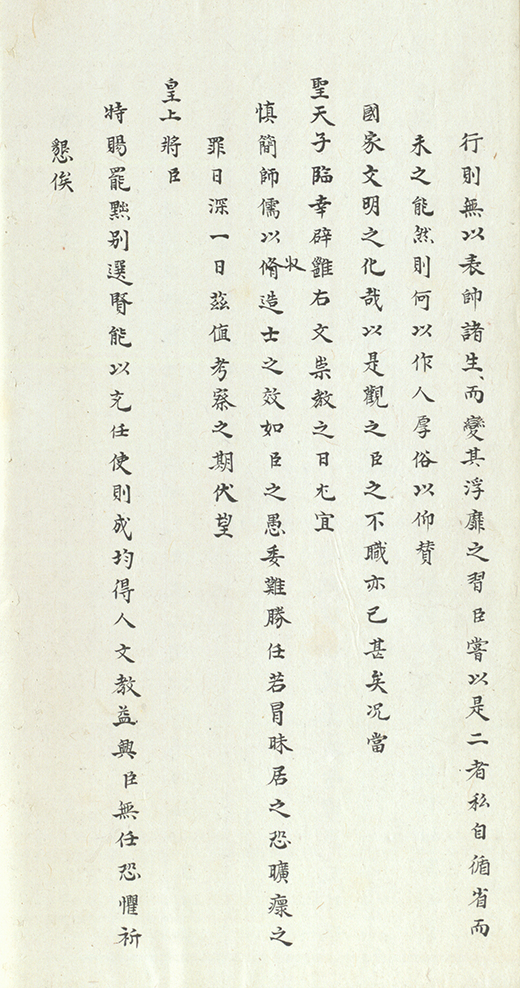 行則無以表帥諸生、而變其浮靡之習臣嘗以是二者私自循省而
未之能然則何以作人厚俗以仰贊
國家文明之化哉以是觀之臣之不職亦已甚矣况當
聖天子臨幸辟雝右文崇教之日尤宜
慎簡師儒以脩造士之效如臣之愚委難勝任若冒昧居之恐曠瘝之
收
罪日深一日茲值考察之期伏望
皇上將臣
特賜罷黜别選賢能以充任使則成均得人文教益興臣無任恐懼祈
懇俟